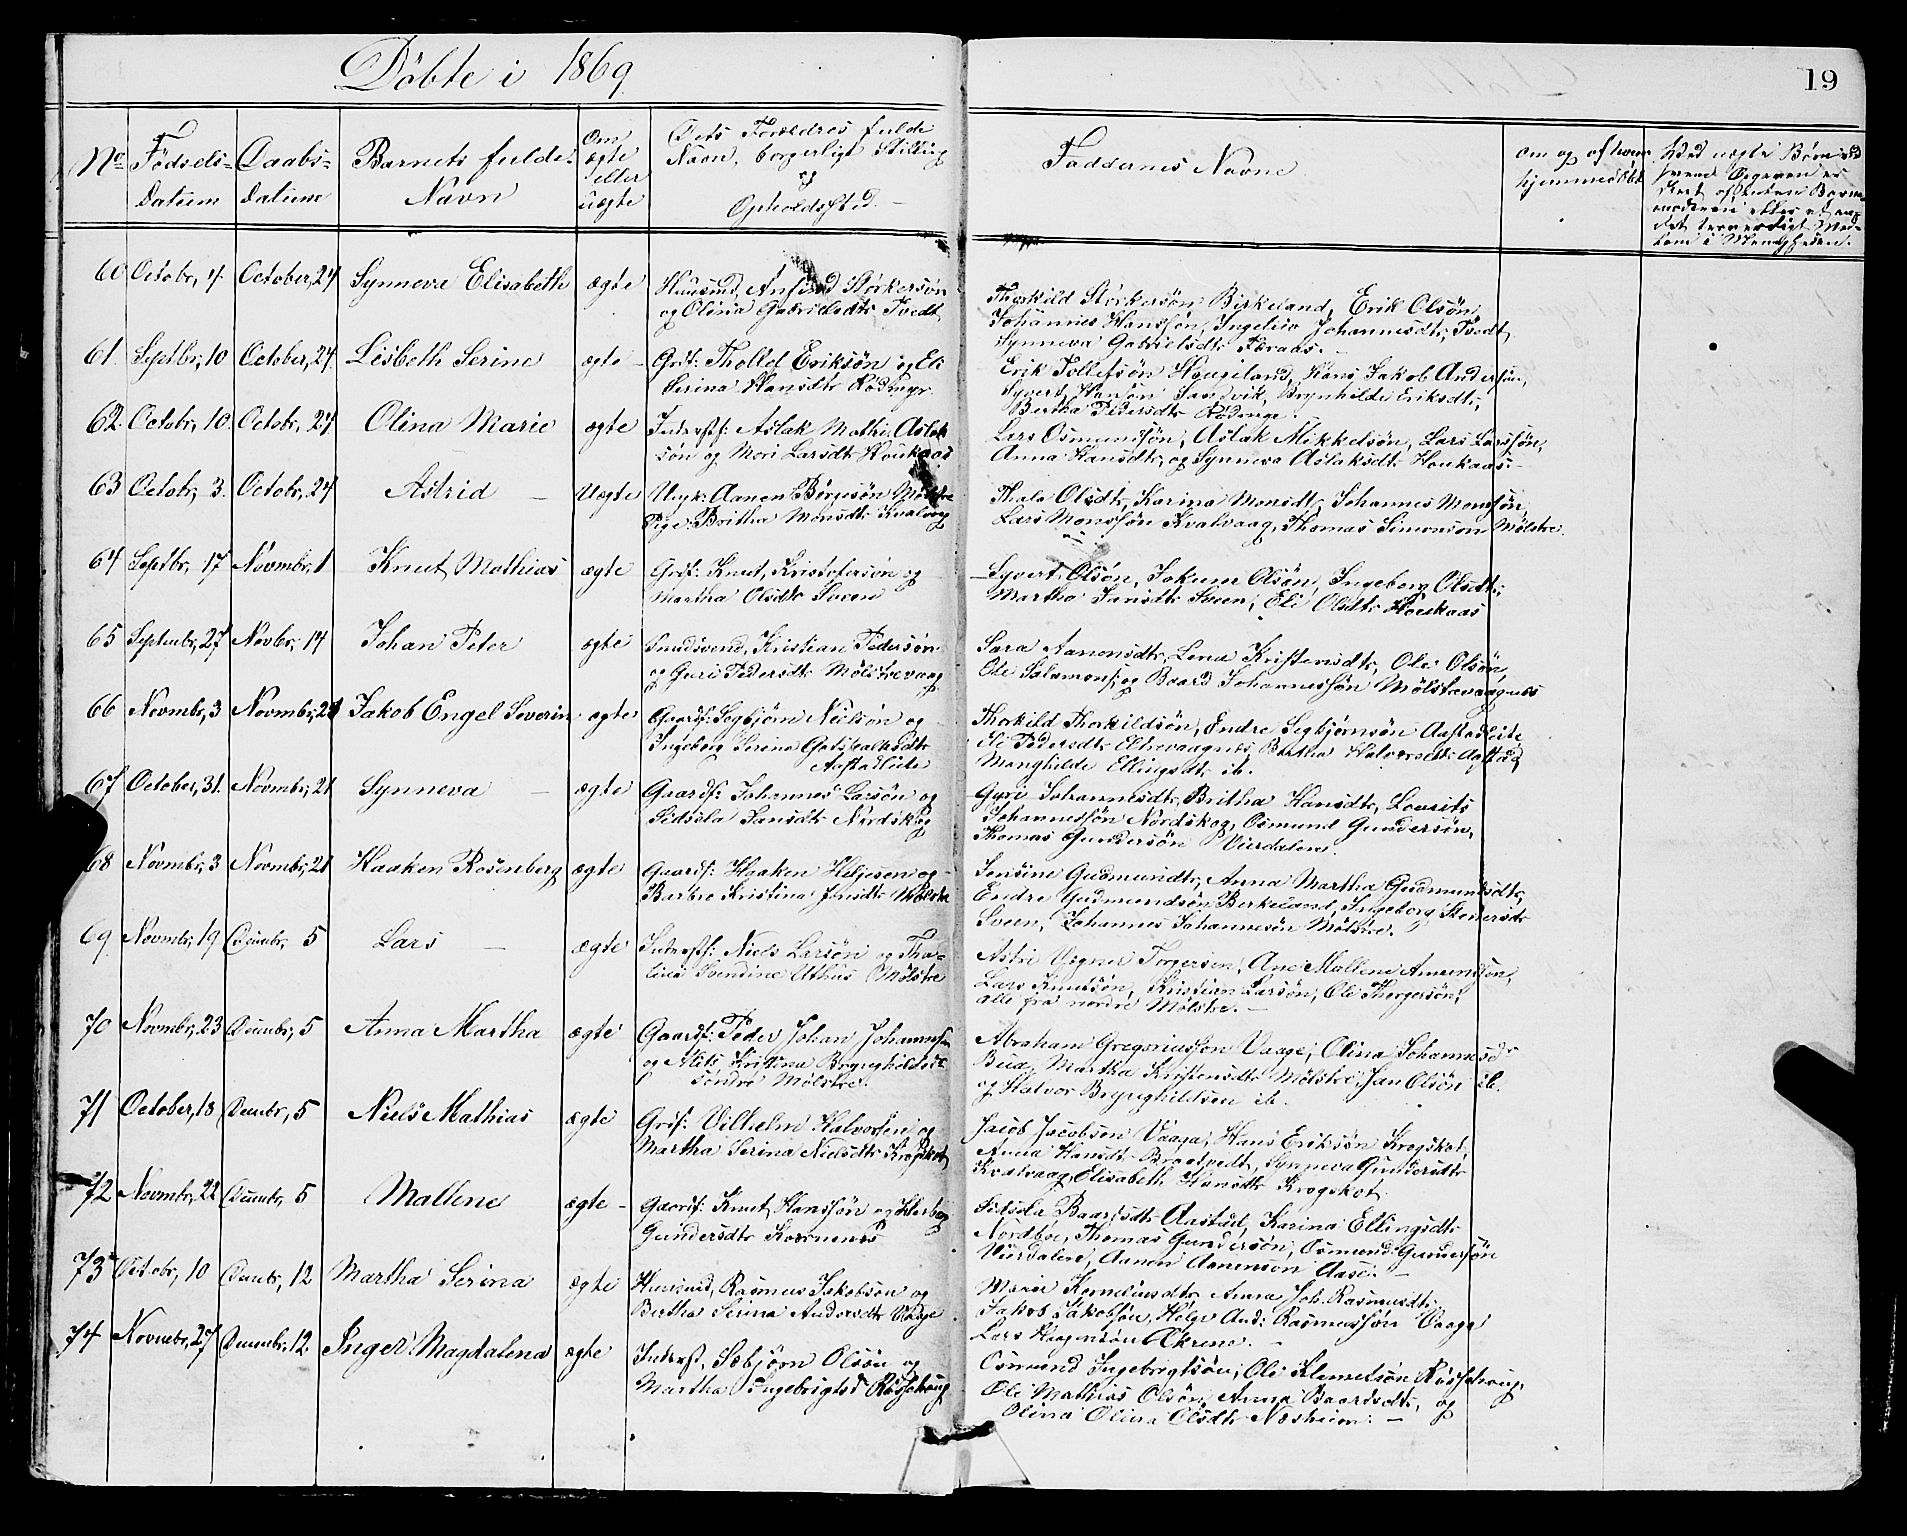 Döbte i 1869.
19
No
Födsels-
Datum
Daabs-
Datum
Barnets fulde
Navn
Om
ægte
eller
uægte
Dets Forældres fulde
Navn, borgerligt Stilling
og
Opholdssted.
Faddernes Navne
Om og af hvem
hjemmedøbt
60 Octobr, 4. October, 24 Synneva Elisabeth ægte Huusmd, Anfind Størkersøn
og Olina Gabrielsdtr Tvedt
Thorkild Størkersøn Birkeland, Erik Olsøn,
Johannes Hanssøn, Ingelev Johannesdtr, Tvedt,
Synneva Gabrielsdtr Foraas.
61. Septbr, 10 October, 24. Lisbeth Serine ægte Grdf: Thollef Eriksøn og Eli
Serina Hansdtr Rødinge.
Erik Tollefsøn Haugeland, Hans Jakob Andersøn,
Syvert Hansøn Sandvik, Brynhilde Eriksdtr,
Bertha Pedersdtr Rødinge.
62. Octobr, 10. Octobr, 24 Olina Marie ægte Inderstf: Aslak Mathi. Aslak
søn og Mari Larsdtr Houkaas
Lars Osmundsøn, Aslak Mikkelsøn, Lars Larssøn,
Anna Hansdtr, og Synneva Aslaksdtr Houkaas.
63 Octobr, 3. Octobr, 24 Astrid Uægte Ungk: Aanen Børgesøn Mølstre
Pige: Britha Monsdtr Kvalvaag
Thala Olsdtr, Karina Monsdtr, Johannes Monsøn,
Lars Monssøn Kvalvaag, Thomas Simonson Mølstre.
64 Septbr, 17 Novmbr, 1 Knut Mathias ægte Grdf: Knut, Kristofersøn og
Martha Olsdtr Sveen
Syvert Olsøn, Jakum Olsøn, Ingeborg Olsdtr,
Martha Jansdtr Sveen, Eli Olsdtr Houkaas
65 Septmbr, 27 Novbr, 14 Johan Peter ægte Smedsvend, Kristian Pedersøn
og Guri Pedersdtr Mølstrevaag
Sara Aanensdtr, Lena Kristensdtr, Ole Olsøn,
Ole Salamons: og Baard Johannessøn Mølstrevaagnes
66 Novmbr, 3 Novmbr, 21 Jakob Engel Severin ægte Gaardf: Segbjørn Neilsøn og
Ingeborg Serina Gotskalksdtr
Aastadlide
Thorkild Thorkildsøn, Endre Segbjørnsøn Aastadlite,
Eli Pedersdtr Eltrevaagnes, Britha Halvorsdtr Aastad,
Manghilde Ellingsdtr ib.
67 October, 31. Novmbr, 21 Synneva ægte Gaardf: Johannes Larsøn og
Sidsela Jansdtr Nordskog
Guri Johannesdtr, Britha Hansdtr, Lourits
Johannessøn Nordskog, Osmund Gundersøn,
Thomas Gundersøn Vierdalen.
68 Novmbr, 3 Novmbr, 21 Haaken Rosenberg ægte Gaardf: Haaken Helgesen og
Barbro Kristina Jonsdtr Mølstre
Jensine Gudmundtr, Anna Martha Gudmundsdtr,
Endre Gudmundsøn Birkeland, Ingeborg Stonersdtr
Sveen, Johannes Johannesøn Mølstre.
69. Novmbr, 19 Decmbr, 5 Lars ægte Inderstf: Niels Larsøn og Tha-
lena Svendine Uthus Mølstre
Astri Vegner Torgersen, Ane Mallene Amundsøn,
Lars Knutsøn, Kristian Larsøn, Ole Thorgersøn,
alle fra nordre Mølstre.
70 Novmbr, 23 Decmbr, 5 Anna Martha ægte Gaardf: Peder Johan Johannsen
og Mets Kristina Brynghildsdtr
søndre Mølstre.
Abraham Gregoriussøn Vaage, Olina Johannesdr
Bua, Martha Kristensdtr Mølstre, Jan Olsøn ib.
og Halvor Brynghildsøn ib.
71 October, 18 Decmbr, 5 Niels Mathias ægte Grdf: Vilhelm Halvorsen og
Martha Serina Nielsdtr Krogskot
Jacob Jacobsen Vaaga, Hans Eriksøn Krogskot,
Anna Hansdtr Braatvedt, Synneva Gundersdtr
Kvalvaag, Elisabeth Hansdtr Krogskot.
72 Novmbr, 22 Decmbr, 5 Mallene ægte Gaardf: Knut Hanssøn og Herborg
Gundersdtr Kvernenes
Sidsela Baardsdtr Aastad, Karina Ellingsdtr
Nordbøe, Thomas Gundersøn, Osmund Gundersøn
Vierdalen, Aanen Aanenson Aase.
73 Octobr, 10 Decmbr, 12 Martha Serina ægte Huusmd, Rasmus Jakobsøn og
Bertha Serina Andersdtr Vaage
Maria Korneliusdtr, Anna Joh. Rasmusdtr,
Jakob Jakobsøn, Helge And: Rasmussøn Vaage
Lars Haagensøn Økrene.
74 Novmbr, 27 Decembr, 12. Inger Magdalena ægte Inderst, Sæbjørn Olsøn og
Martha Ingebrigtsd Røsshoug
Osmund Ingebrigtsøn, Ole Klemetsøn Røsshoug,
Ole Mathias Olsøn, Anna Baardsdtr, og
Olina Olina Olsdtr Næsheim.